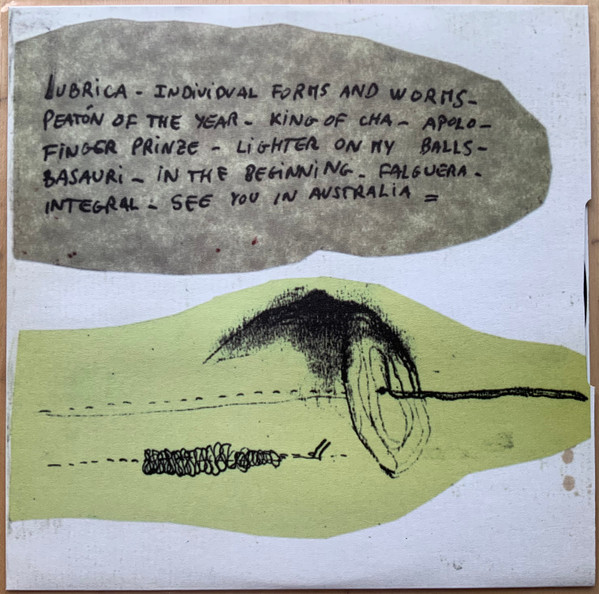 LUBRICA - INDIVIDUAL FORMS AND WORMS -
PEATÓN OF THE YEAR - KING OF CHA - APOLO -
FINGER PRINZE - LIGHTER ON MY BALLS -
BASAURI - IN THE BEGINNING - FALGUERA -
INTEGRAL - SEE YOU IN AUSTRALIA =